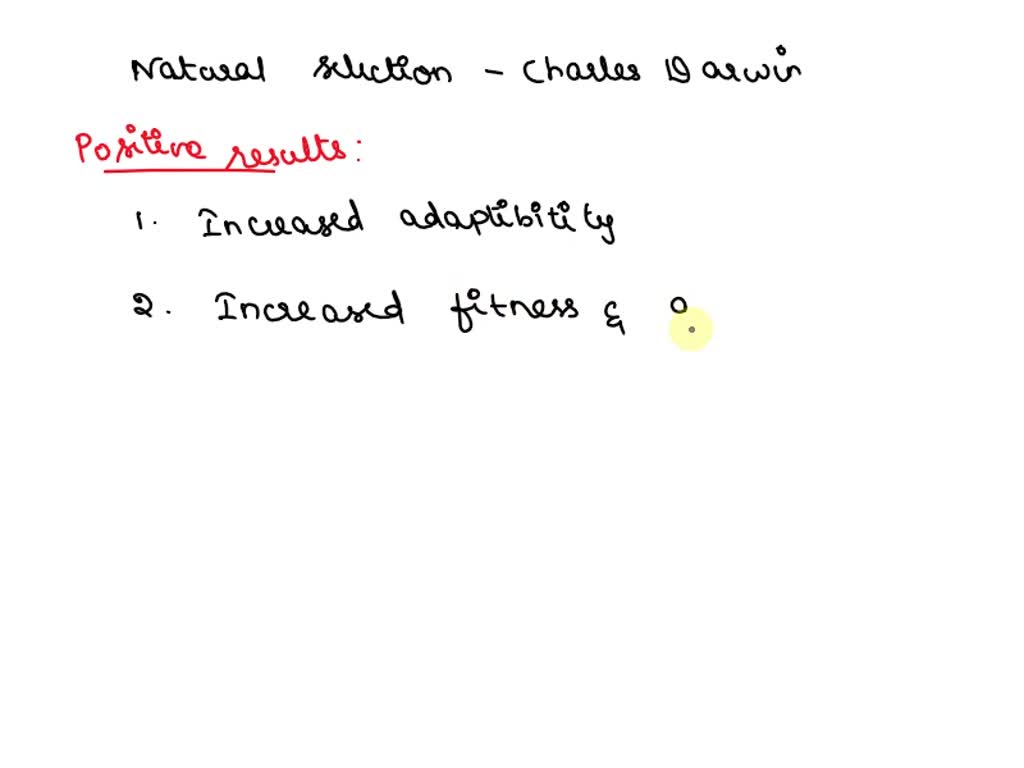 Natural selection - Charles Darwin
Positive results:
1. Increased adaptibitity
2. Increased fitness &